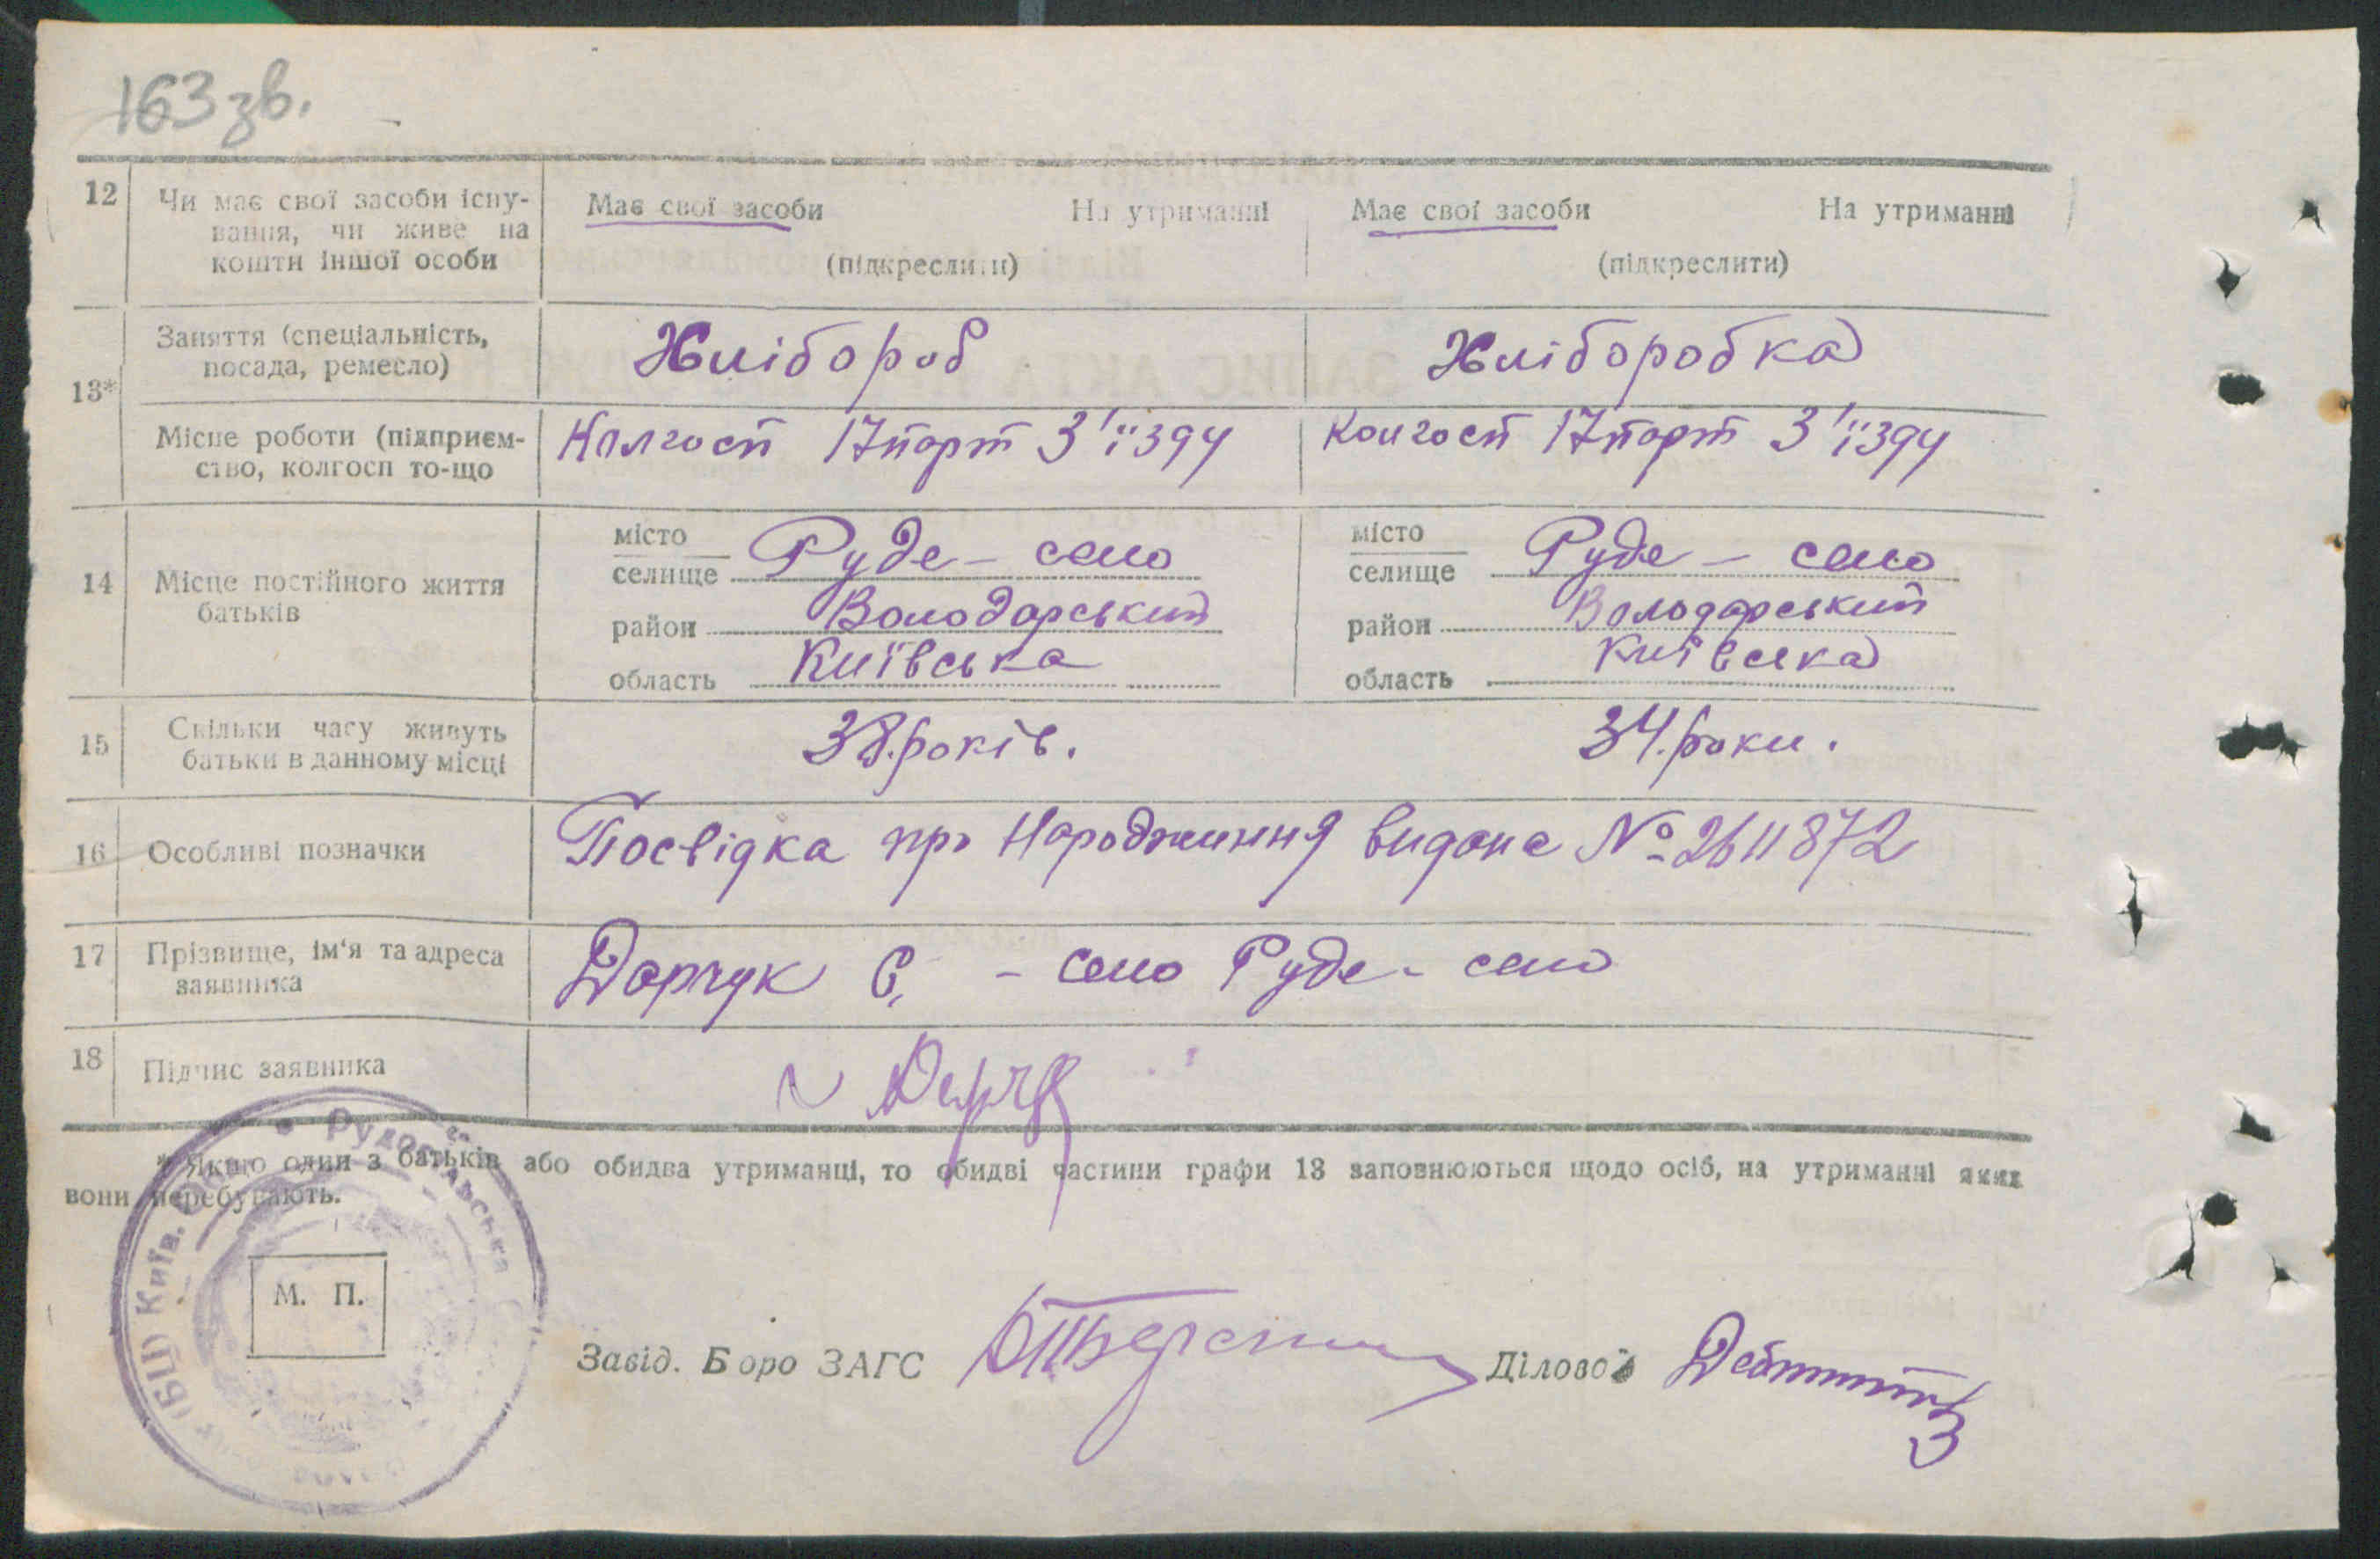 163 зв.
12 Чи має свої засоби існу-
вання, чи живе на
кошти іншої особи
Має свої засоби На утриманні Має свої засоби На утриманні
(підкреслити) (підкреслити)
13* Заняття (спеціальність,
посада, ремесло)
Хлібороб Хліборобка
Місце роботи (підприєм-
ство, колгосп то-що
Колгосп 17 парт З'їзду Колгосп 17 парт З'їзду
14 Місце постійного життя
батьків
місто
селище Руде-село
район Володарський
область Київська
місто
селище Руде-село
район Володарський
область Київська
15 Скільки часу живуть
батьки в данному місці
38. років. 34. роки.
16 Особливі позначки Посвідка про Народження видана № 2611872
17 Прізвище, ім'я та адреса
заявника
Дарчук Є. - село Руде-село
18 Підпис заявника
* Якщо один з батьків або обидва утриманці, то обидві частини графи 13 заповнюються щодо осіб, на утриманні яких
вони перебувають.
Рудосільська
Київ.
М. П.
Завід. Бюро ЗАГС Діловод